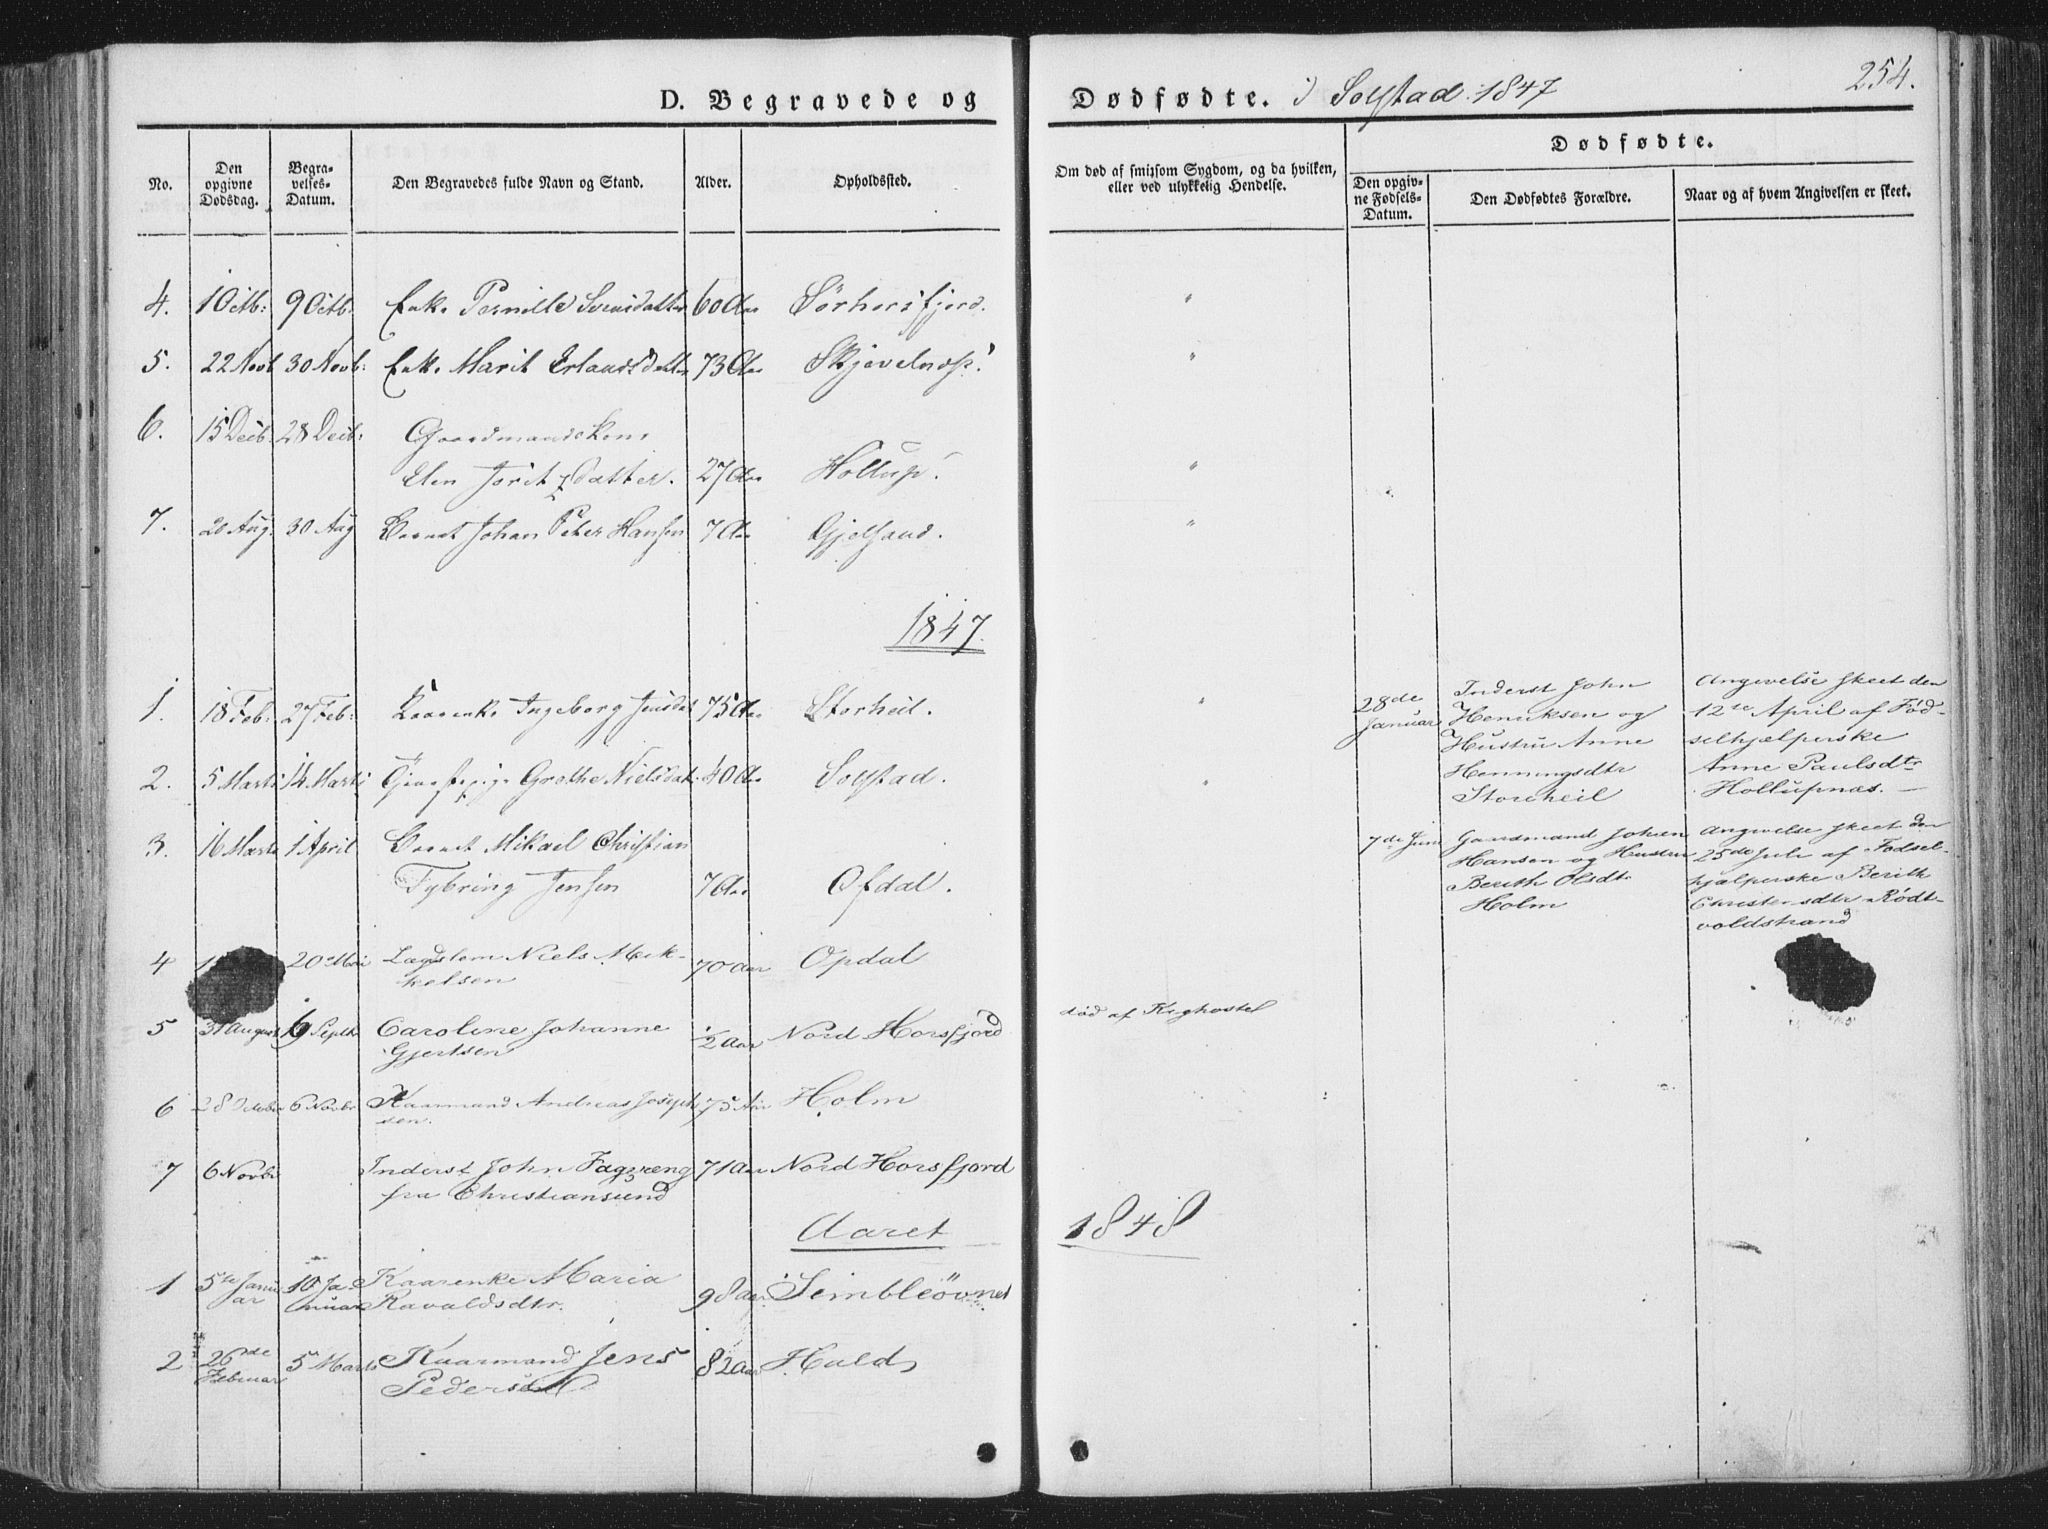 254.
D. Begravede og Dødfødte. i Solstad 1847
No.
Den opgivne Dødsdag.
Begravelses-Datum.
Den Begravedes fulde Navn og Stand.
Alder.
Opholdssted.
Om død af smitsom Sygdom, og da hvilken,
eller ved ulykkelig Hendelse.
Dødfødte.
Den opgivne Fødsels-Datum.
Den Dødfødtes Forældre.
Naar og af hvem Angivelsen er skeet.
4. 1 Octb: 9 Octb: Enke Pernille 60 Aar "
5. 22 Novb 30 Novb: Enke Marit Erlandsdatter 73 Aar "
6. 15 Decb. 28 Decb: Gaardmandskone
Elen datter. 27 Aar Hollup. "
7. 20 Aug. 30 Aug Barnet Johan Peter Hansen 7 Aar "
1847.
1. 18 Feb: 27 Feb: Kaarenke Ingeborg Jensdat 75 Aar Storheil. "
28de Januar
Inderst John
Henriksen og
Hustru Anne
Henningsdtr
Storheil
Angevelse skeet den
12te April af Fød-
selhjælperske
Anne Paulsdtr
Hollupnæs. —
2. 5 Marti 14 Marti Grethe Nielsdat. 40 Aar Solstad. "
3. 16 Marti 1 April Barnet Mikael Christian
Tybring Jensen 7 Aar Ofdal.
7de Juni
Gaardmand Johan
Hansen og Hustru
Berith Olsdtr
Holm
Angevelse skeet den
25de Juli af Fødsel-
hjælperske Berith
Christensdtr Rødt-
voldstrand
4 20 Mai Lægdslem Niels Mik-
kelsen 70 Aar Opdal
5 31 August Septbr Caroline Johanne
Gjertsen 1/2 Aar Nord Horsfjord død af Kighoste
6 28 October 6 Novbr Kaarmand Andreas Joseph
sen. 75 Aar Holm
7 6 Novbr Inderst John Fagereng
fra Christiansund 71 Aar Nord Horsfjord
Aaret 1848
1 5te Januar 10 Januar Kaarenke Maria
Ravaldsdtr. 98 Aar
2 26de Februar 5 Marts Kaarmand Jens
Pedersen 82 Aar Hald